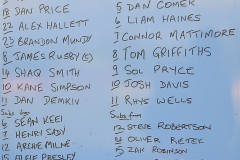 18 DAN PRICE
22 ALEX HALLETT
23 BRANDON MUNDY
8 JAMES RUSBY (S)
14 SHAQ SMITH
10 KANE SIMPSON
11 DAN DEMKIV
Subs
6 SEAN KEEL
7 HENRY SADY
12 ARCHIE MILNE
15 ALFIE PRESLEY
5 DAN COMER
6 LIAM HAINES
7 CONNOR MATTIMORE
8 TOM GRIFFITHS
9 SOL PRYCE
10 JOSH DAVIS
11 RHYS WELLS
Subs from
STEVE ROBERTSON
OLIVER RETEK
15 ZAK ROBINSON